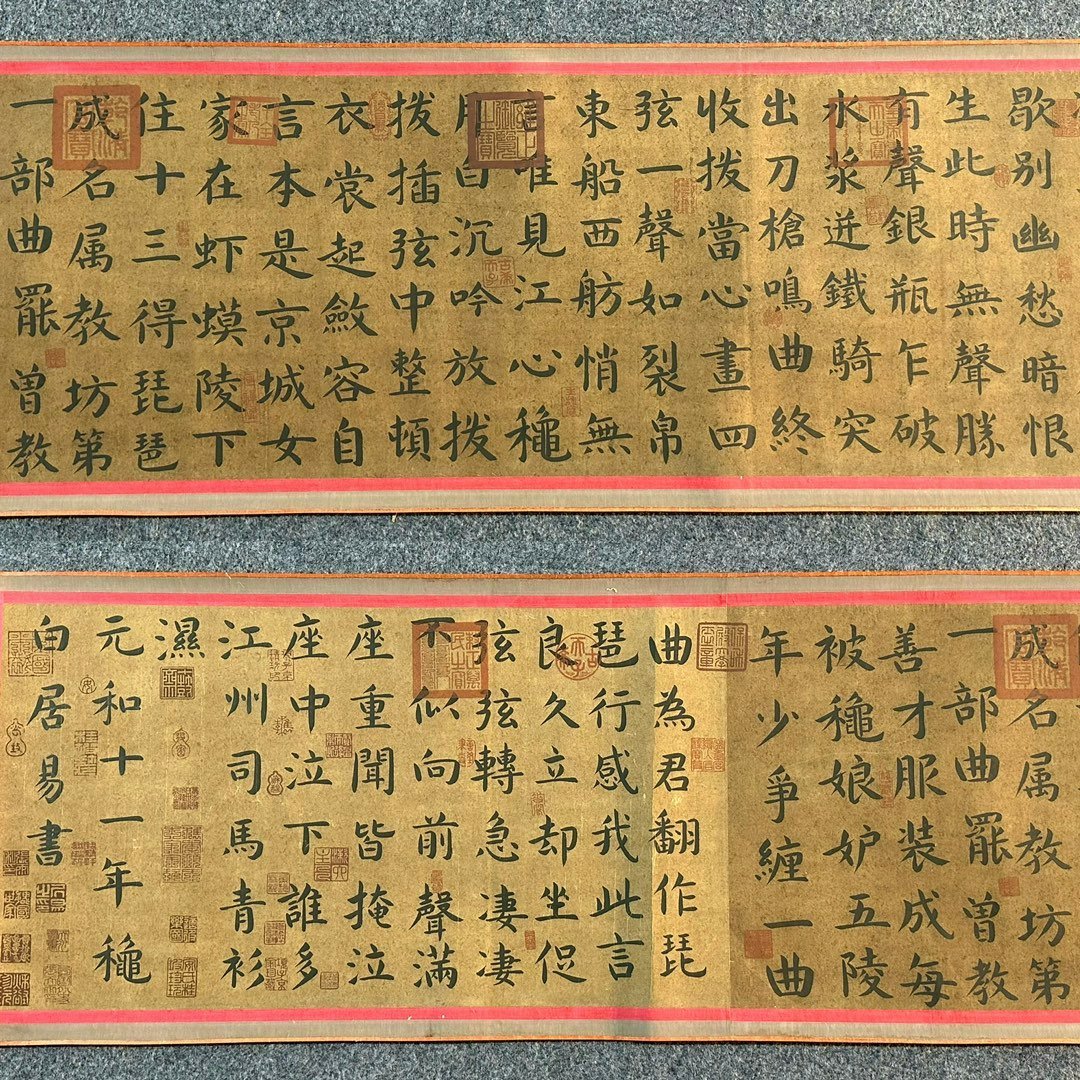 歇别幽愁暗恨
生此時無聲勝
有聲銀瓶乍破
水浆迸鐵騎突
出刀槍鳴曲終
收拨當心畫四
弦一聲如裂帛
東船西舫悄無
言唯見江心穐
月白沉吟放拨
拨插弦中整頓
衣裳起斂容自
言本是京城女
家在虾蟆陵下
住十三得琵琶
成名属教坊第
一部曲罷曾教
成名属教坊第
一部曲罷曾教
善才服装成每
被穐娘妒五陵
年少爭纏一曲
曲為君翻作琵
琶行感我此言
良久立却坐促
弦弦轉急凄凄
不似向前聲滿
座重聞皆掩泣
座中泣下誰多
江州司馬青衫
濕
元和十一年穐
白居易書